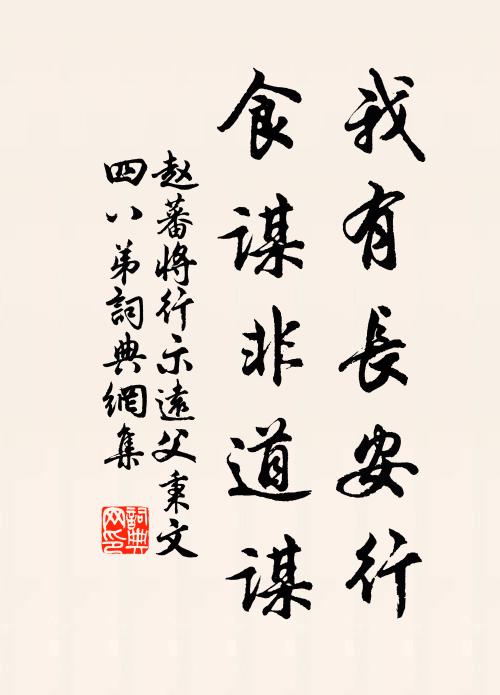 我有長安行
食謀非道謀
赵蕃將行示遠父秉文
四八弟詞典網集
詞典网印